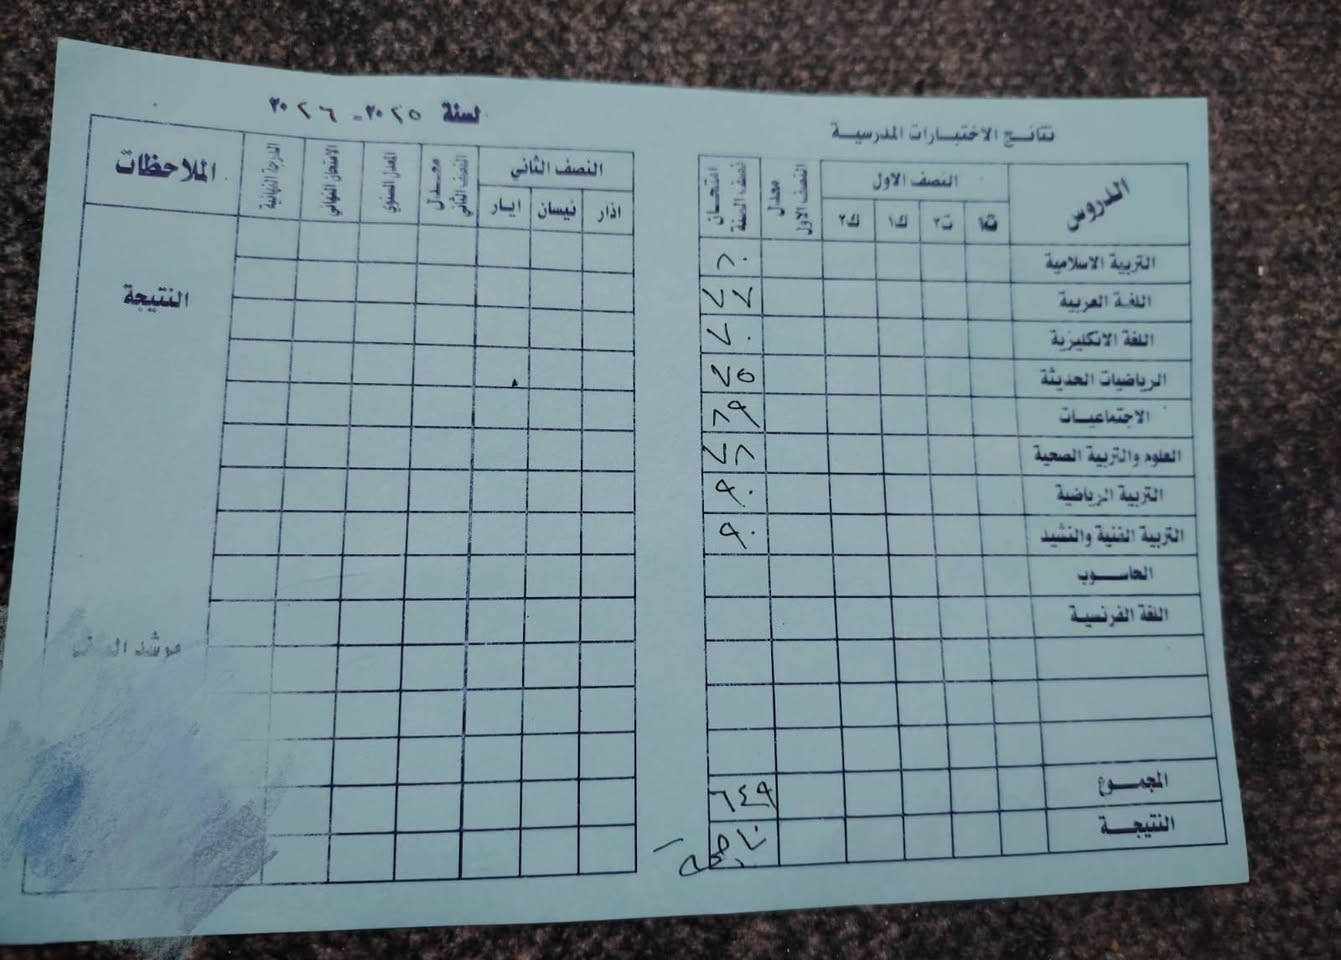 نتائج الاختبارات المدرسية
الدروس
النصف الاول
ت١ ت٢ ك١ ك٢
معدل النصف الاول
امتحان نصف السنة
التربية الاسلامية ٨٠
اللغة العربية ٧٧
اللغة الانكليزية ٧٠
الرياضيات الحديثة ٧٥
الاجتماعيات ٨٩
العلوم والتربية الصحية ٧٨
التربية الرياضية ٩٠
التربية الفنية والنشيد ٩٠
الحاسوب
اللغة الفرنسية
المجموع ٦٤٩
النتيجة ناجحة
لسنة ٢٠٢٥ - ٢٠٢٦
النصف الثاني
اذار نيسان ايار
معدل النصف الثاني
المعدل السنوي
الامتحان النهائي
الدرجة النهائية
الملاحظات
النتيجة
مرشد